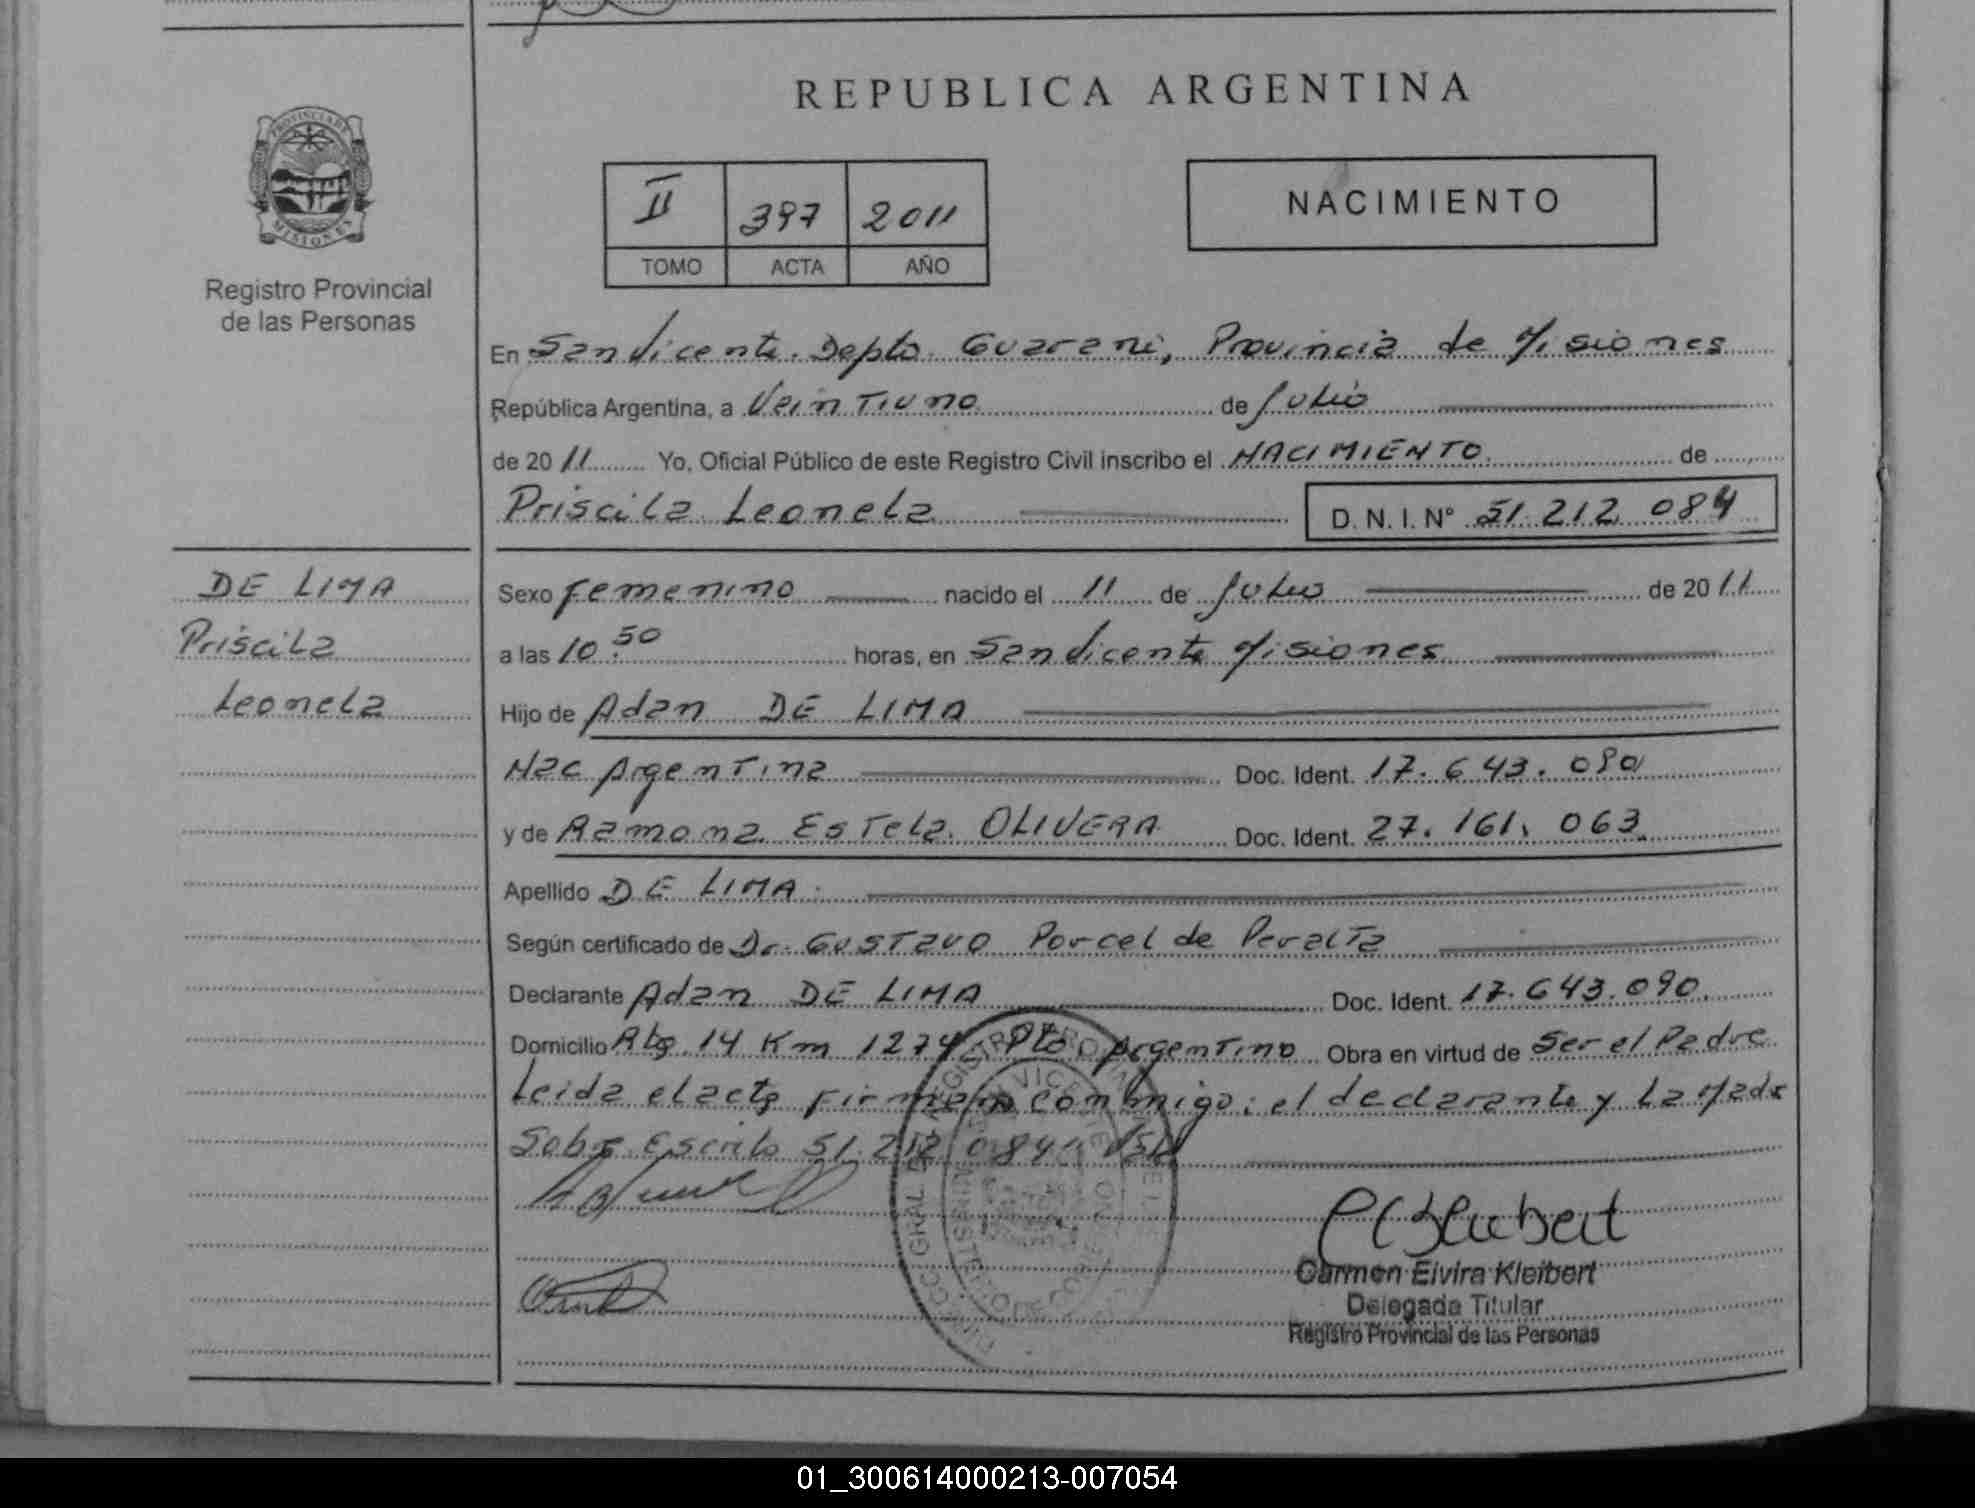 REPUBLICA ARGENTINA
PROVINCIA DE MISIONES
Registro Provincial
de las Personas
II 397 2011
TOMO ACTA AÑO
NACIMIENTO
En San Vicente. Depto. Guarani, Provincia de Misiones
República Argentina, a Veintiuno de Julio
de 2011 Yo, Oficial Público de este Registro Civil inscribo el NACIMIENTO de
Priscila Leonela D. N. I. N° 51.212.084
DE LIMA
Priscila
Leonela
Sexo Femenino nacido el 11 de Julio de 2011
a las 10.50 horas, en San Vicente Misiones
Hijo de Adan DE LIMA
Nac Argentina Doc. Ident. 17.643.090
y de Ramona Estela OLIVERA Doc. Ident. 27.161.063
Apellido DE LIMA
Según certificado de Dr. Gustavo Porcel de Peralta
Declarante Adan DE LIMA Doc. Ident. 17.643.090
Domicilio Rta. 14 Km 1274 Pto Argentino Obra en virtud de Ser el Padre
Leida el acta firman conmigo: el declarante y La Madre
Sobre Escrito 51.212.084
Carmen Elvira Kleibert
Delegada Titular
Registro Provincial de las Personas
01_300614000213-007054